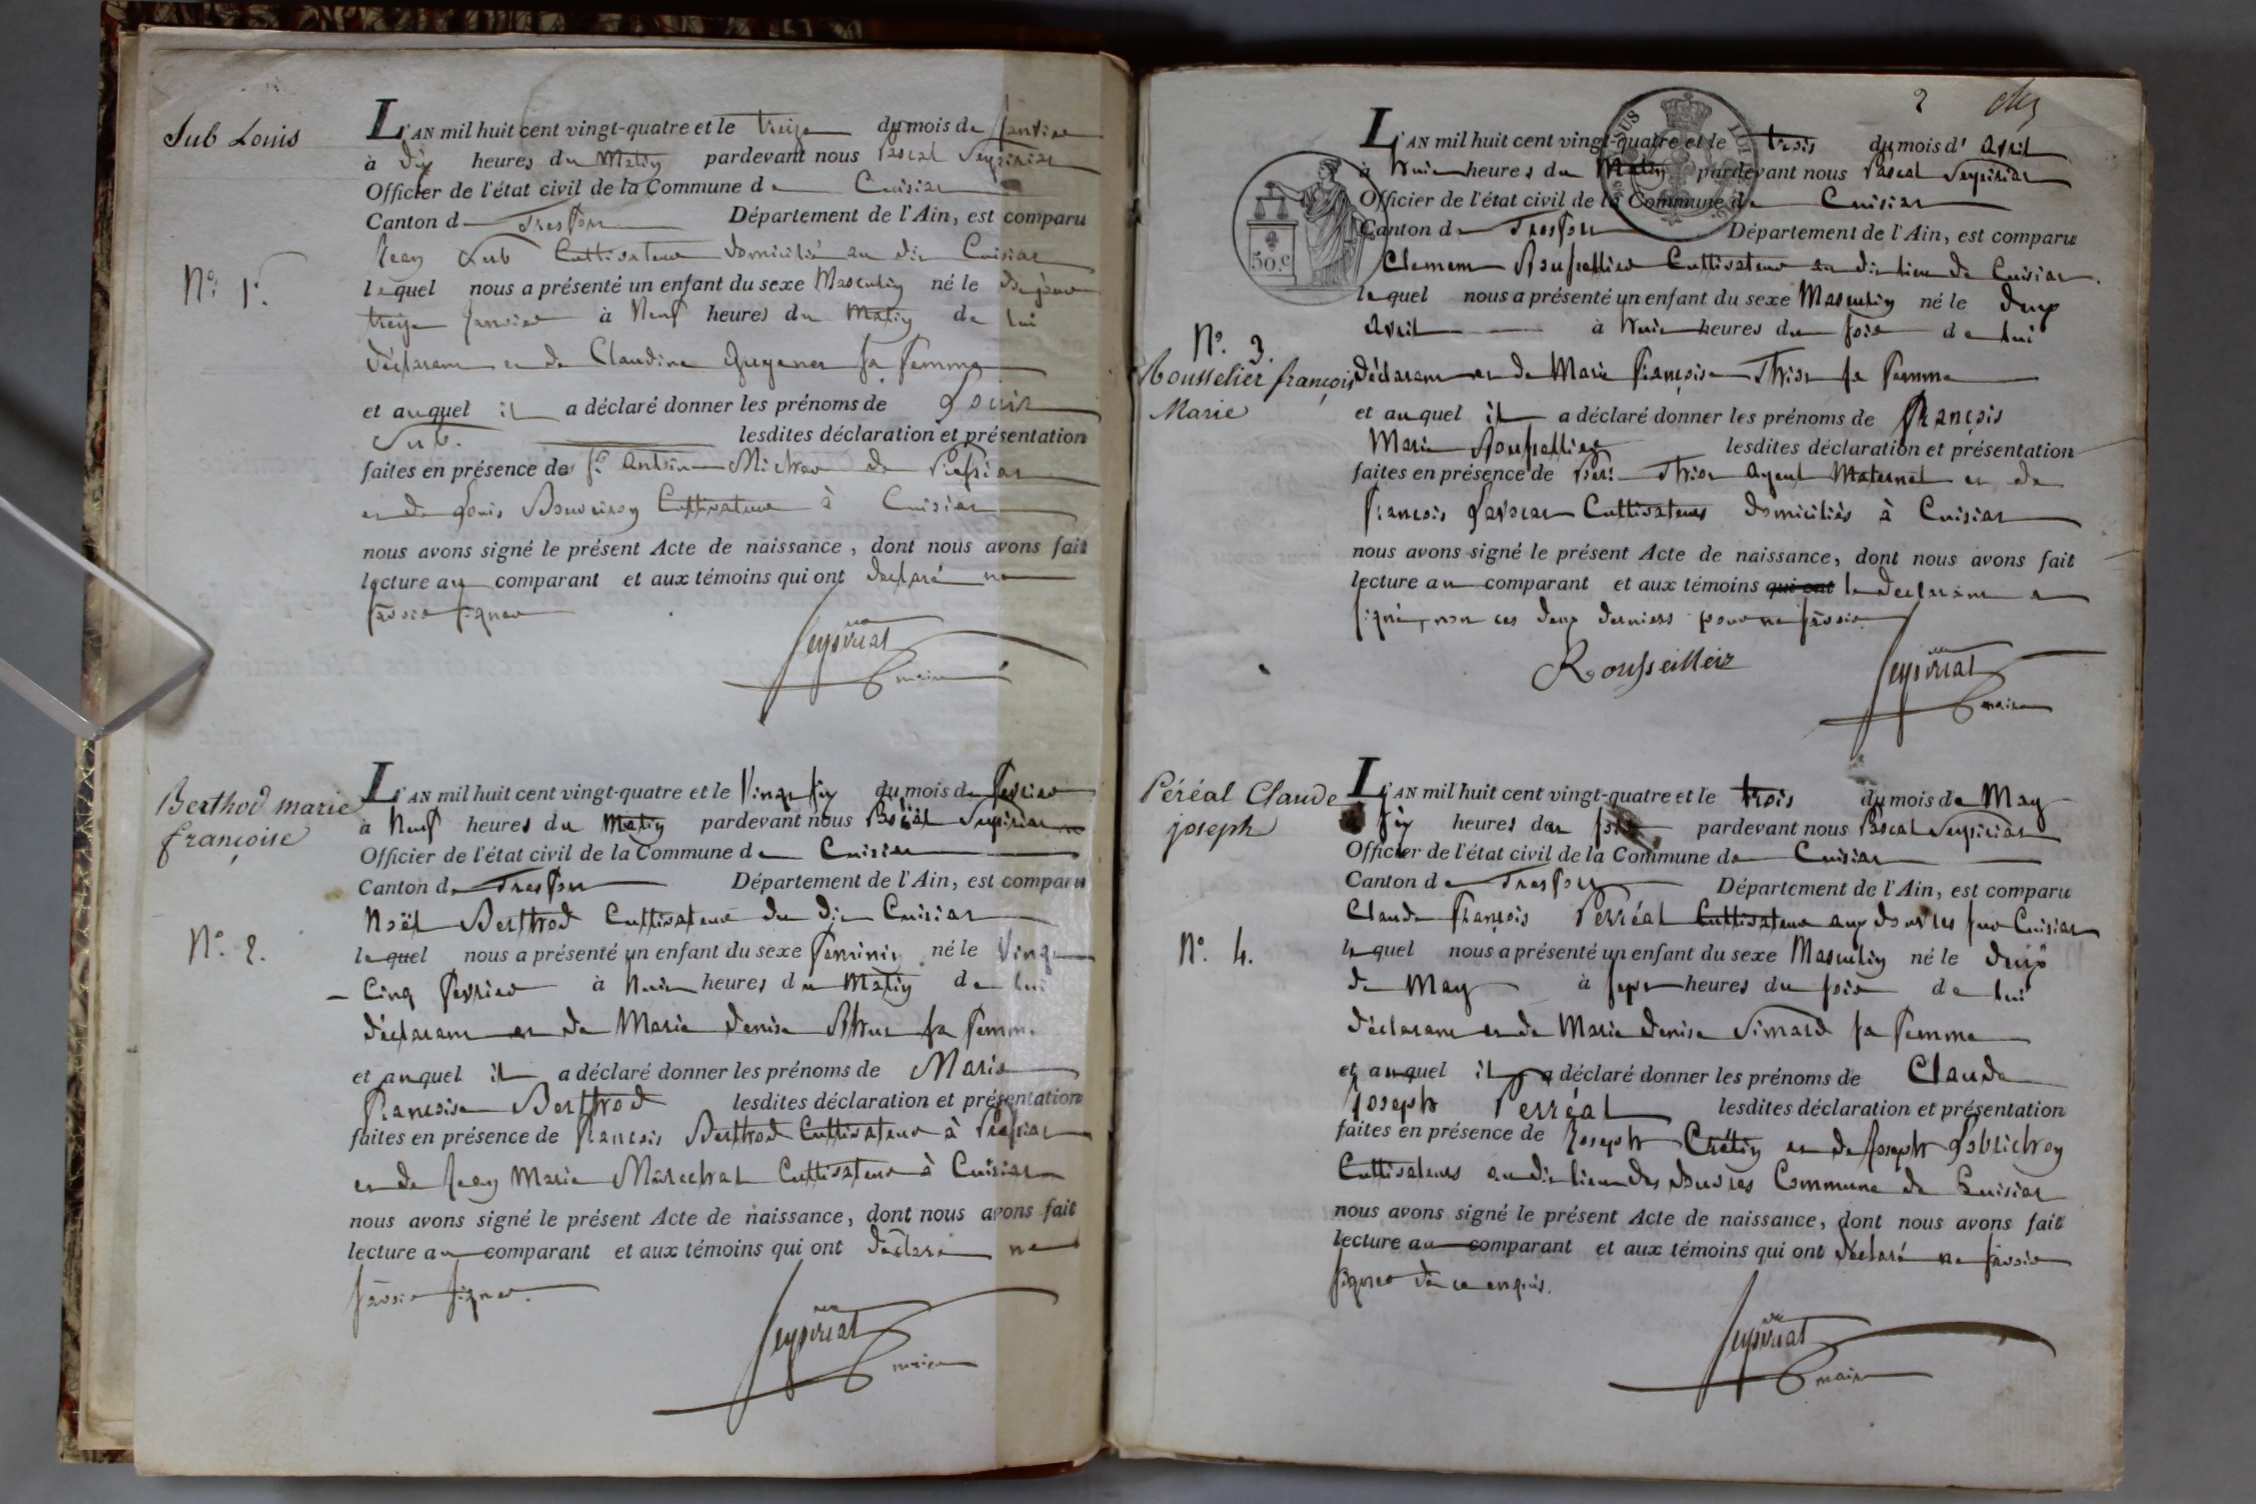 Sub Louis
N.° 1.er
L'AN mil huit cent vingt-quatre et le treize du mois de janvier
à dix heures du Matin pardevant nous Pascal Seyssiriat
Officier de l'état civil de la Commune de Cuisiat
Canton de Treffort Département de l'Ain, est comparu
Jean Sub Cultivateur domicilié au dit Cuisiat
lequel nous a présenté un enfant du sexe Masculin né le
treize janvier à Neuf heures du Matin de lui
déclarant et de Claudine sa femme
et auquel il a déclaré donner les prénoms de Louis
Sub. lesdites déclaration et présentation
faites en présence de Michon de Pressiat
et de Louis Bouveiron Cultivateur à Cuisiat
nous avons signé le présent Acte de naissance, dont nous avons fait
lecture au comparant et aux témoins qui ont déclaré ne
savoir signer
Seyssiriat
maire
Berthod marie
françoise
N.° 2.
L'AN mil huit cent vingt-quatre et le Vingt six du mois de fevrier
à Neuf heures du Matin pardevant nous Pascal Seyssiriat
Officier de l'état civil de la Commune de Cuisiat
Canton de Treffort Département de l'Ain, est comparu
Noël Berthod Cultivateur du dit Cuisiat
lequel nous a présenté un enfant du sexe feminin né le Vingt
Cinq fevrier à huit heures du Matin de lui
déclarant et de Marie denise sa femme
et auquel il a déclaré donner les prénoms de Marie
françoise Berthod lesdites déclaration et présentation
faites en présence de françois Berthod Cultivateur à Pressiat
et de Jean Marie Maréchal Cultivateur à Cuisiat
nous avons signé le présent Acte de naissance, dont nous avons fait
lecture au comparant et aux témoins qui ont déclaré ne
savoir signer.
Seyssiriat
maire
2
50.c
N.° 3.
Rousselier françois
Marie
L'AN mil huit cent vingt-quatre et le trois du mois d' avril
à huit heures du Matin pardevant nous Pascal Seyssiriat
Officier de l'état civil de la Commune de Cuisiat
Canton de Treffort Département de l'Ain, est comparu
Clement Rousselier Cultivateur au dit lieu de Cuisiat
lequel nous a présenté un enfant du sexe Masculin né le deux
avril à huit heures du soir de lui
déclarant et de Marie françoise Thion sa femme
et auquel il a déclaré donner les prénoms de françois
Marie Rousselier lesdites déclaration et présentation
faites en présence de Thion ayeul Maternel et de
françois Cultivateurs domiciliés à Cuisiat
nous avons signé le présent Acte de naissance, dont nous avons fait
lecture au comparant et aux témoins qui ont le declarant a
signé, non ces deux derniers pour ne savoir
Rousseilleir
Seyssiriat
maire
Péréal Claude
joseph
N.° 4.
L'AN mil huit cent vingt-quatre et le trois du mois de May
à six heures du soir pardevant nous Pascal Seyssiriat
Officier de l'état civil de la Commune de Cuisiat
Canton de Treffort Département de l'Ain, est comparu
Claude françois Perréal Cultivateur aux douvres sur Cuisiat
lequel nous a présenté un enfant du sexe Masculin né le deux
de May à sept heures du soir de lui
déclarant et de Marie denise Simard sa femme
et auquel il a déclaré donner les prénoms de Claude
Joseph Perréal lesdites déclaration et présentation
faites en présence de Joseph Crétin et de Joseph
Cultivateurs au dit lieu des douvres Commune de Cuisiat
nous avons signé le présent Acte de naissance, dont nous avons fait
lecture au comparant et aux témoins qui ont déclaré ne savoir
signer de ce enquis.
Seyssiriat
maire